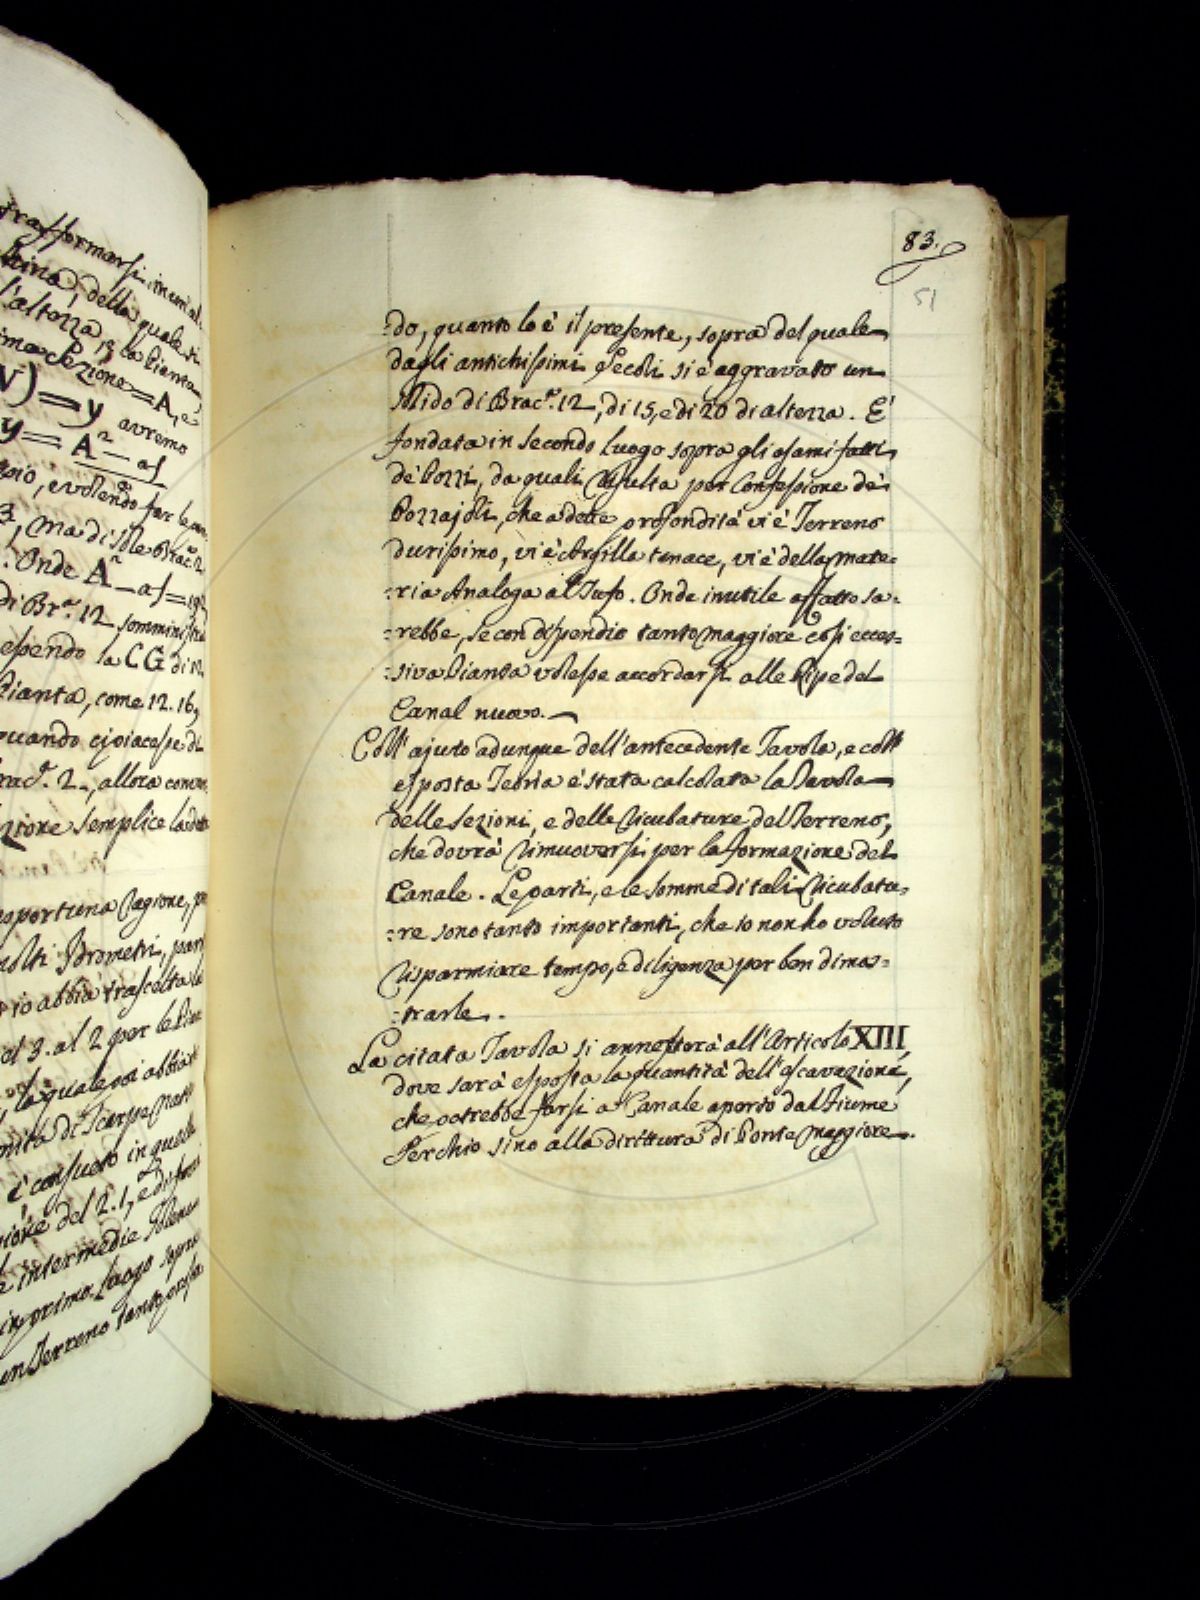 trasformarsi in un al-
della quale si
l'altezza, 13 la Pianta
Sezione = A, e
V) = y avremo
y = A² - as
, e volendo far le
3, ma di sole Brac.ª 2
. Onde A² - as =
di Br.ª 12 sommini
essendo la CG di 12
Pianta, come 12. 16,
quando ci piacesse di
Brac.ª 2, allora
zione semplice la
opportuna Cagione, p
molti Idrometri, par
io abbia trascelta la
del 3. al 2 per le
la quale poi abbia
di Scarpe
è consueto in quelle
zione del 2. 1, e di
e intermedie
in primo luogo sopra
un Terreno tanto
83.
51
:do, quanto lo è il presente, sopra del quale
dagli antichissimi Secoli si è aggravato un
Nido di Brac.ª 12, di 15, e di 20 di altezza. E'
fondata in secondo luogo sopra gli esami fatti
de' Pozzi, da quali Risulta per Confessione de'
Pozzajoli, che a dette profondità vi è Terreno
durissimo, vi è Argilla tenace, vi è della mate=
:ria Analoga al Tufo. Onde inutile affatto sa=
:rebbe, se con dispendio tanto maggiore così ecces=
:siva Pianta volesse accordarsi alle Ripe del
Canal nuovo.
Coll' ajuto adunque dell' antecedente Tavola, e coll'
esposta Teoria è stata calcolata la Tavola
delle Sezioni, e delle Ricubature del Terreno,
che dovrà Rimuoversi per la formazione del
Canale. Le parti, e le somme di tali Ricubatu=
:re sono tanto importanti, che io non ho voluto
Risparmiare tempo, e diligenza per ben dimos=
:trarle.
La citata Tavola si annetterà all' Articolo XIII,
dove sarà esposta la quantità dell' escavazione,
che potrebbe farsi a Canale aperto dal Fiume
Serchio sino alla dirittura di Ponte maggiore.